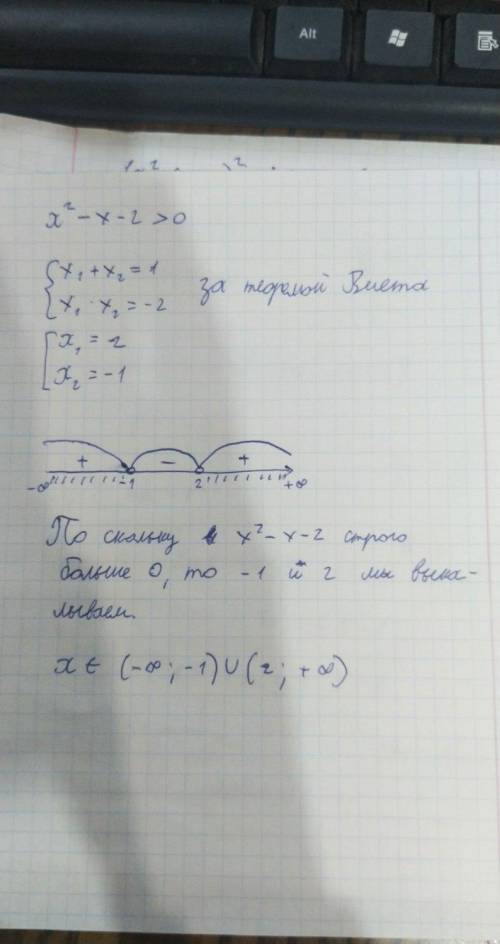 Alt
x² - x - 2 > 0
{ x₁ + x₂ = 1
{ x₁ · x₂ = -2 за теоремой Виета
[ x₁ = 2
[ x₂ = -1
+ - +
-∞ -1 2 +∞
По скольку x² - x - 2 строго
больше 0, то -1 и 2 мы выка-
лываем.
x ∈ (-∞; -1) ∪ (2; +∞)